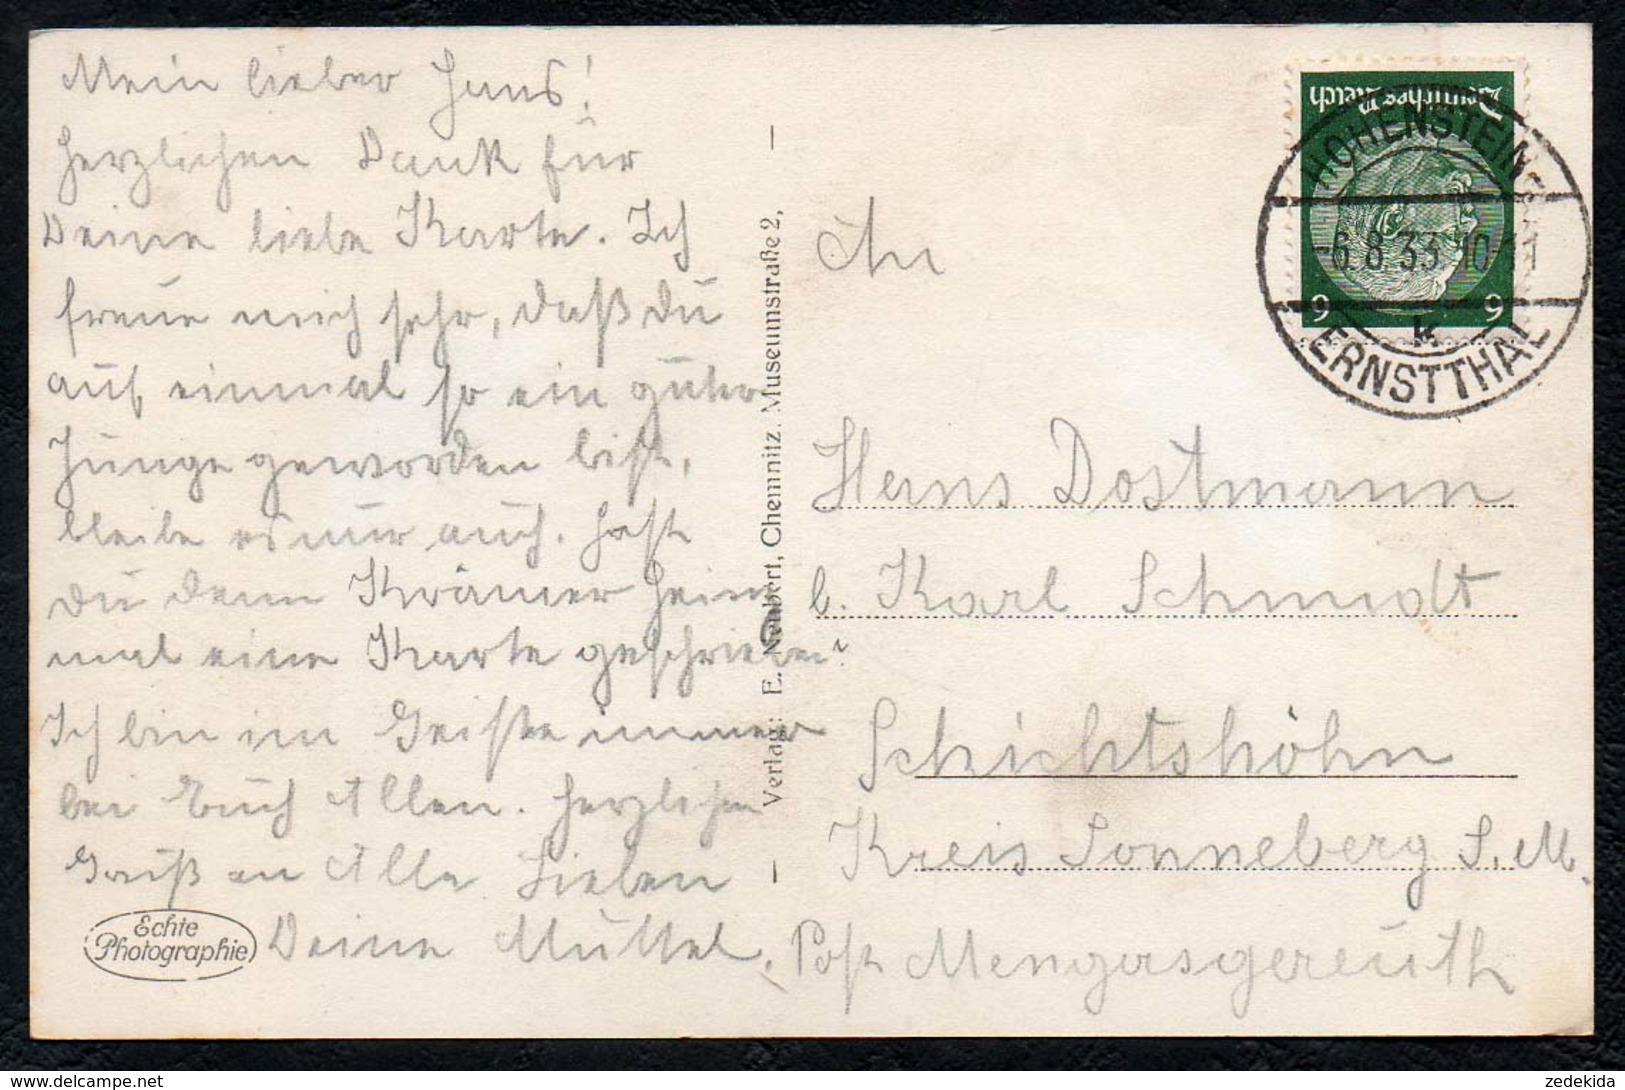 Mein lieber Hans!
Herzlichen Dank für
Deine liebe Karte. Ich
freue mich sehr, daß Du
auf einmal so ein guter
Junge geworden bist,
bleibe es nur auch. Hast
Du denn Krämer Heim
mal eine Karte geschrieben?
Ich bin im Geiste immer
bei Euch Allen. Herzlichen
Gruß an Alle Lieben
Deine Muttel.
Echte
Photographie
Verlag: E. Neubert, Chemnitz. Museumstraße 2,
Deutsches Reich
6 6
HOHENSTEIN-
-6.8.33.10-11
k
ERNSTTHAL
An
Hans Dostmann
b. Karl Schmidt
Schichtshöhn
Kreis Sonneberg S. M.
Post Mengersgereuth
zedekida